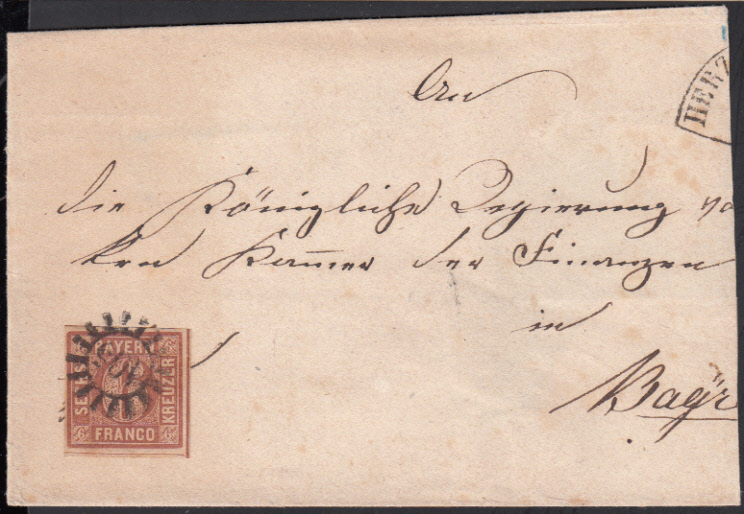 An
HERZ
die Königliche Regierung vo
Kammer der Finanzen
in
Bayr
BAYERN
SECHS
KREUZER
FRANCO
6 6